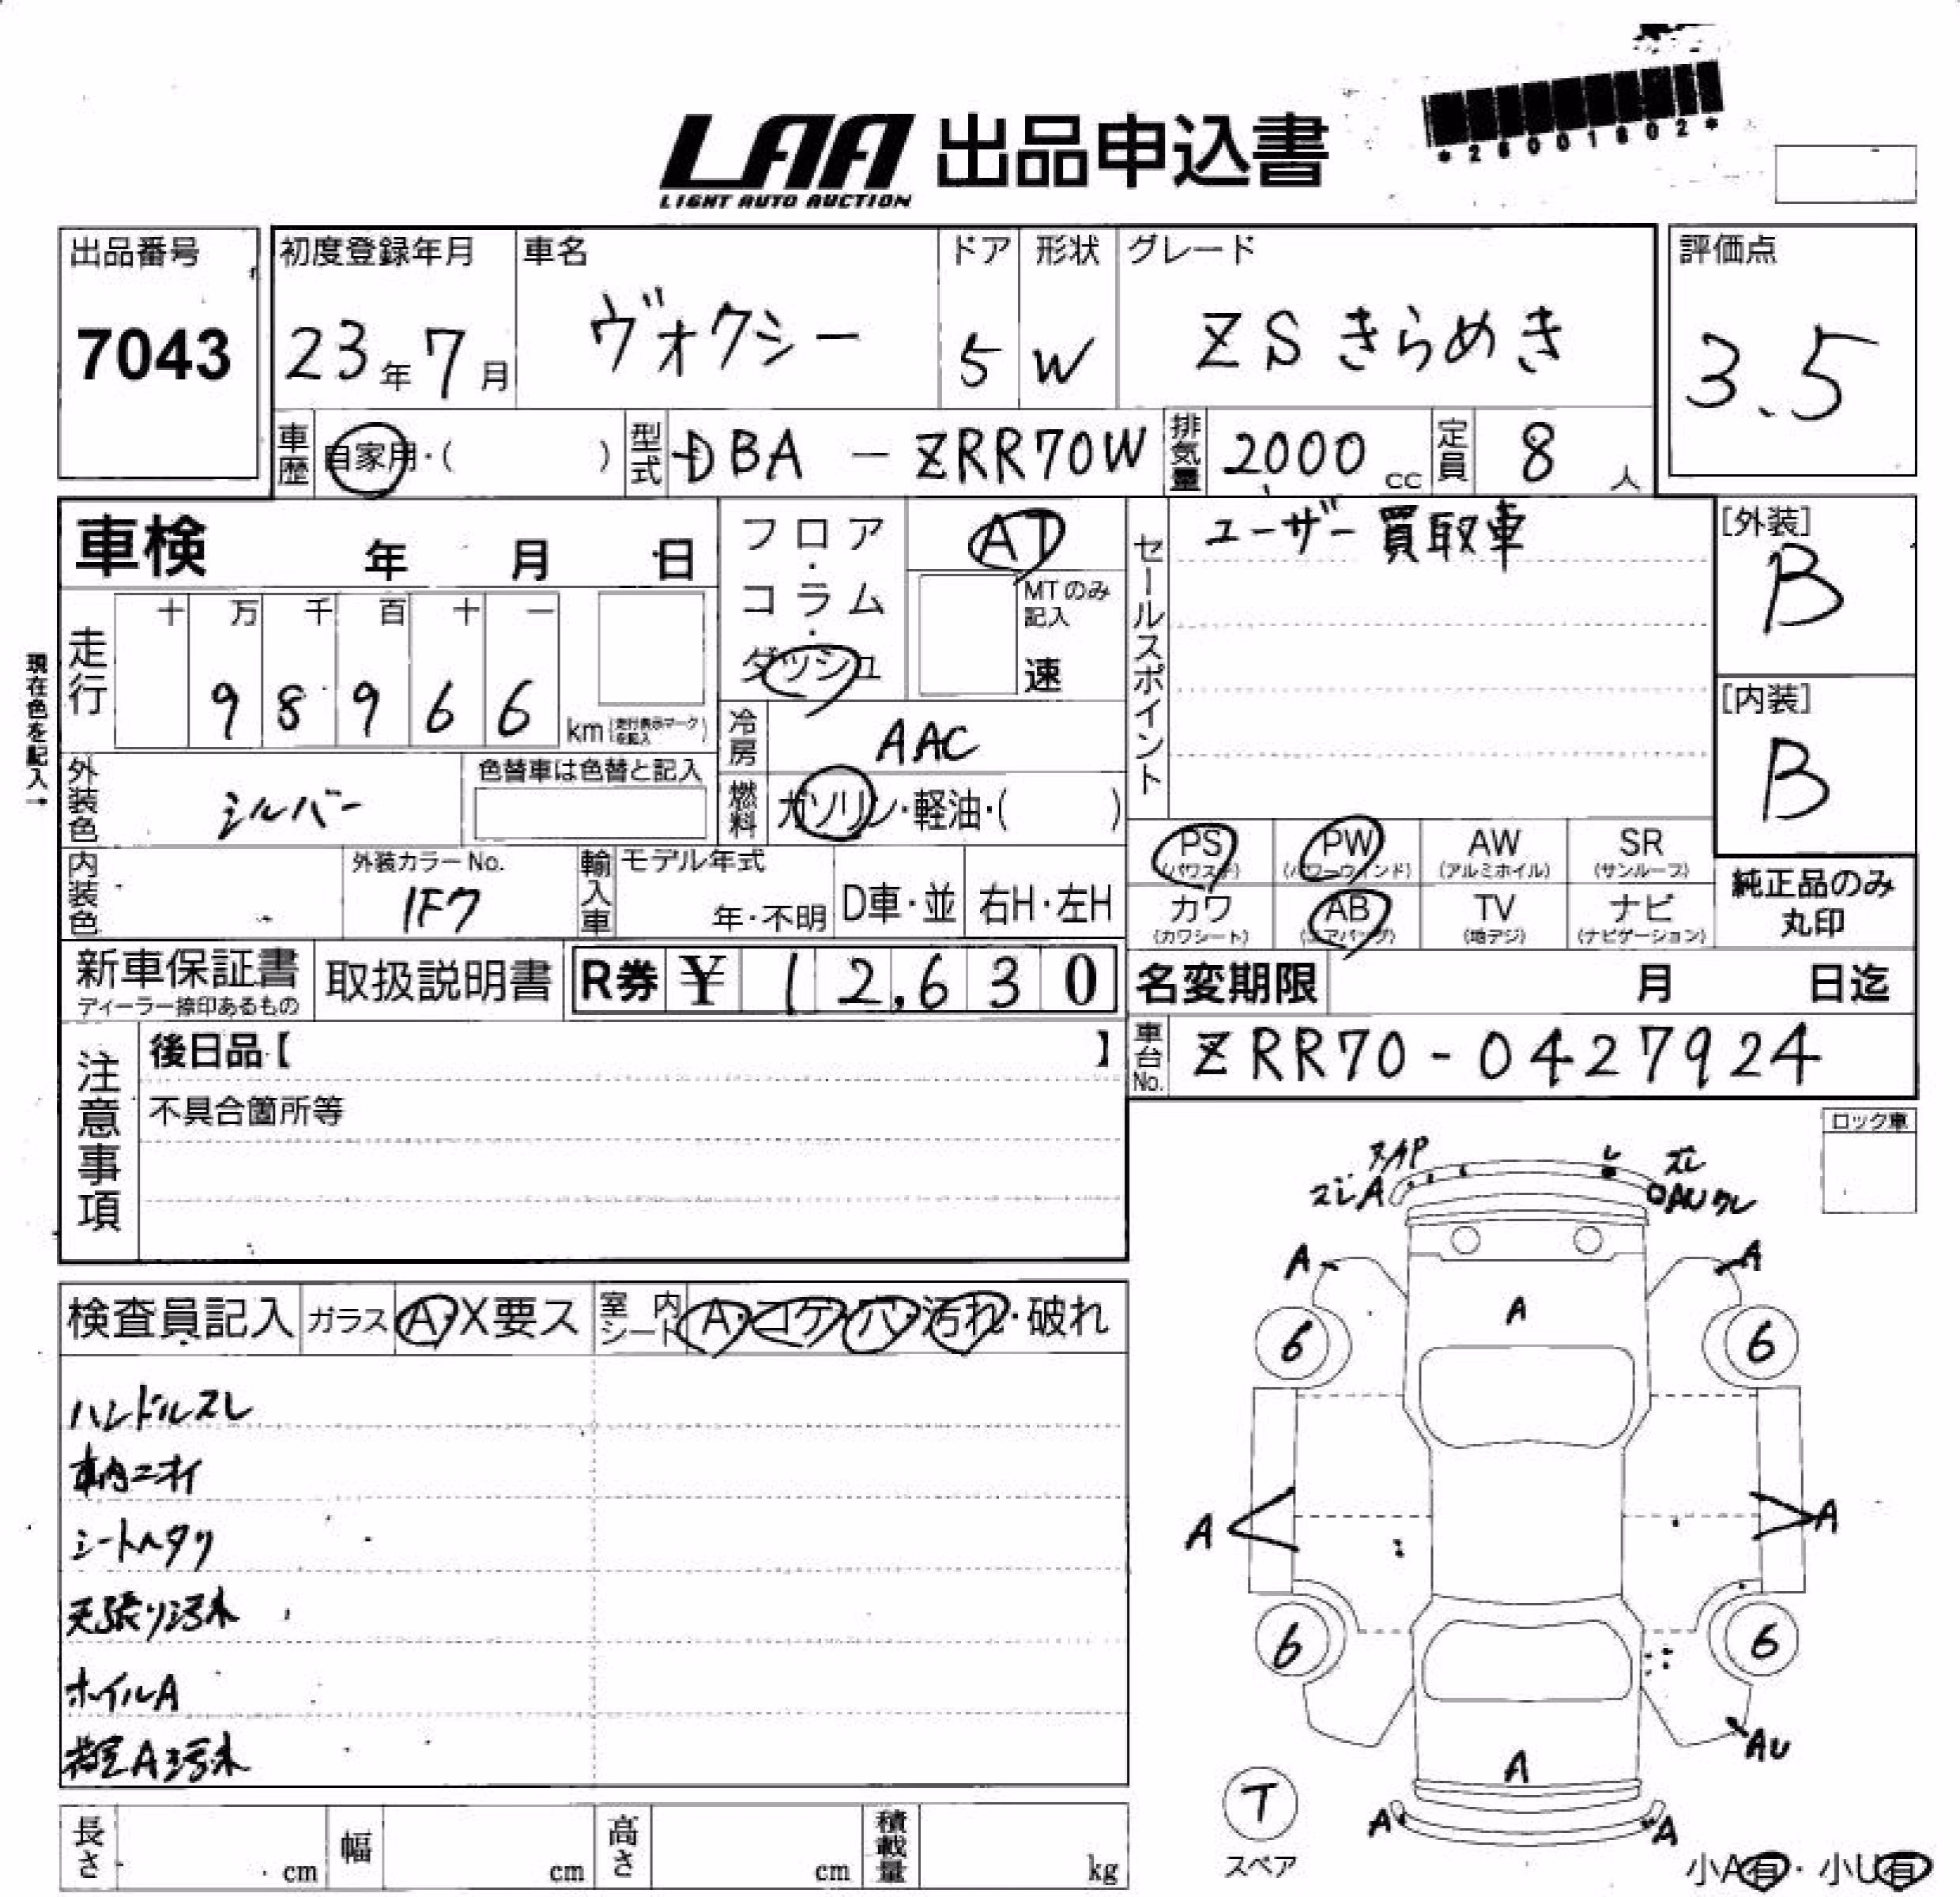 *26001602*
LAA 出品申込書
LIGHT AUTO AUCTION
出品番号 初度登録年月 車名 ドア 形状 グレード 評価点
7043 23年7月 ヴォクシー 5 W ZSきらめき 3.5
車歴 自家用・( ) 型式 DBA-ZRR70W 排気量 2000cc 定員 8人
車検 年 月 日 フロア・コラム・ダッシュ AT
MTのみ記入 速
セールスポイント ユーザー買取車
[外装] B
[内装] B
現在色を記入→
走行 十 万 千 百 十 一
9 8 9 6 6 km (走行表示マークを記入)
冷房 AAC
外装色 シルバー 色替車は色替と記入
燃料 ガソリン・軽油・( )
PS (パワステ) PW (パワーウィンド) AW (アルミホイル) SR (サンルーフ)
カワ (カワシート) AB (エアバッグ) TV (地デジ) ナビ (ナビゲーション)
純正品のみ丸印
内装色 外装カラーNo. 1F7 輸入車 モデル年式 年・不明 D車・並 右H・左H
新車保証書 ディーラー捺印あるもの 取扱説明書 R券 ¥12,630
名変期限 月 日迄
車台No. ZRR70-0427924
注意事項 後日品【 】
不具合箇所等
ロック車
検査員記入 ガラス A・X要ス 室内シート A・コゲ・穴・汚れ・破れ
ハンドルスレ
車内ニオイ
シートヘタリ
天張り汚れ
ホイルA
荷室A汚れ
スレA
AUワレ
A A
A
6 6
A A
6 6
AU
A
T
スペア
A A
小A有・小U有
長さ cm 幅 cm 高さ cm 積載量 kg